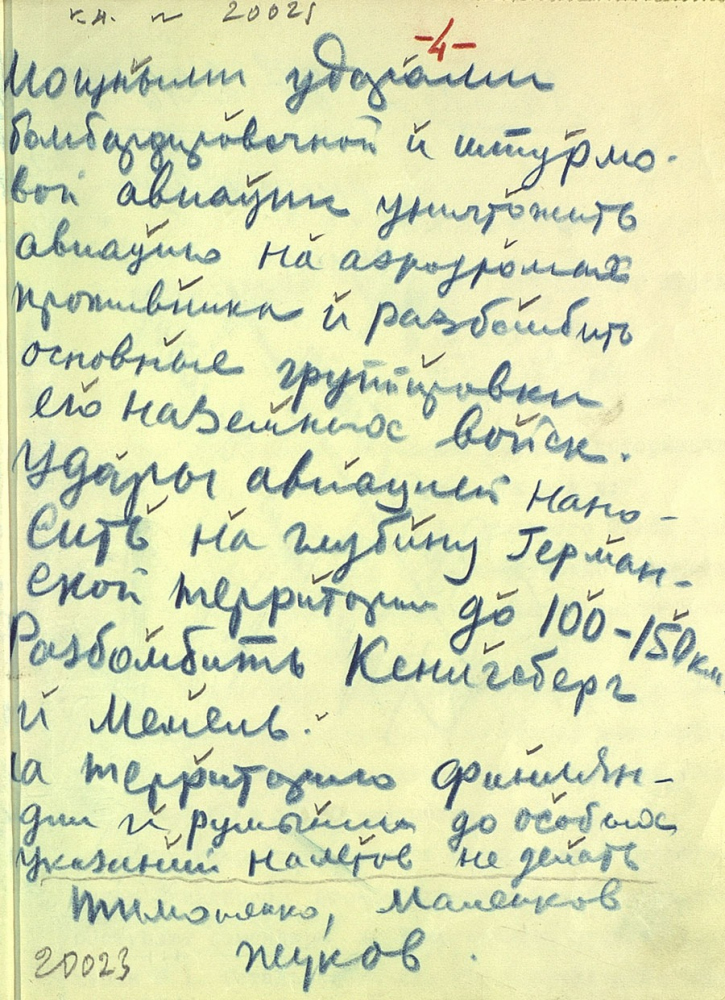 к.н. № 20023
-4-
Мощными ударами
бомбардировочной и штурмо-
вой авиации уничтожить
авиацию на аэродромах
противника и разбомбить
основные группировки
его наземных войск.
Удары авиацией нано-
сить на глубину Герман-
ской территории до 100-150 км
Разбомбить Кенигсберг
и Мемель.
а территорию финлян-
дии и румынии до особых
указаний налетов не делать
Тимошенко, Маленков
Жуков.
20023